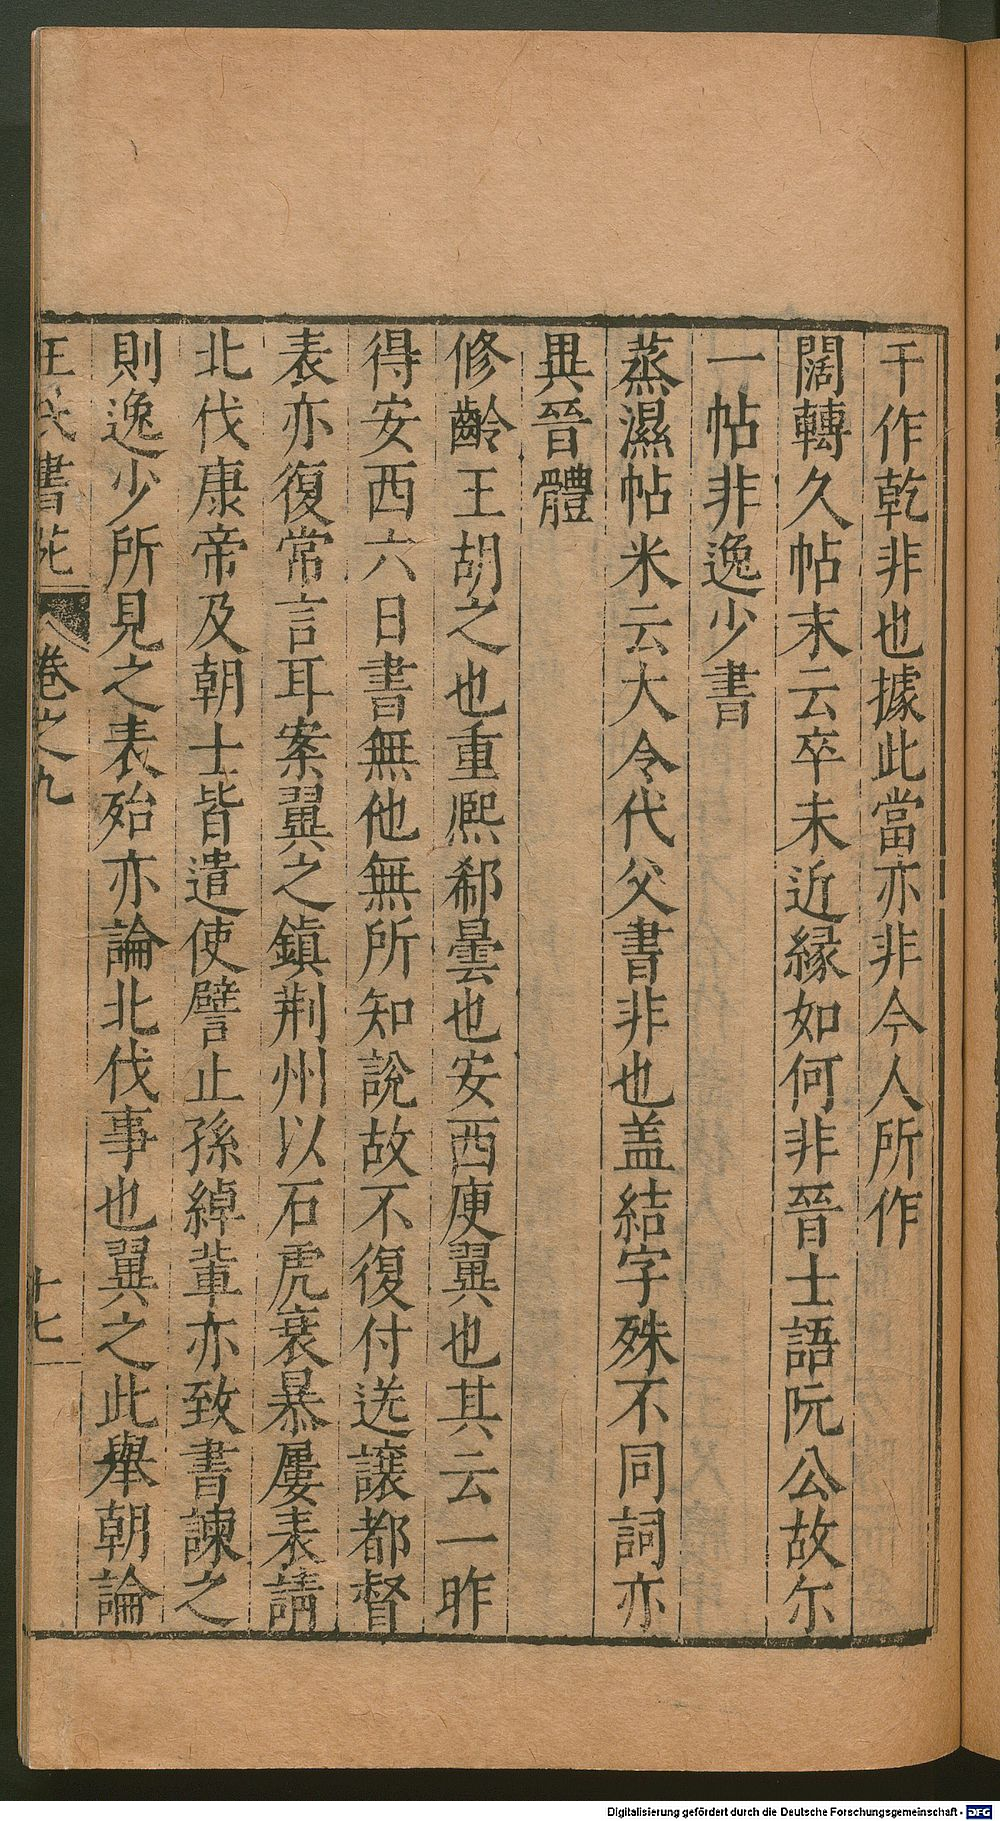 干作乾非也據此當亦非今人所作
闊轉久帖末云卒未近縁如何非晉士語阮公故尔
一帖非逸少書
蒸濕帖米云大令代父書非也盖結字殊不同詞亦
異晉體
修齡王胡之也重熈郗曇也安西庾翼也其云一昨
得安西六日書無他無所知說故不復付送讓都督
表亦復常言耳案翼之鎮荆州以石虎衰暴屢表請
北伐康帝及朝士皆遣使譬止孫綽輩亦致書諫之
則逸少所見之表殆亦論北伐事也翼之此舉朝論
王氏書苑 卷之九 十七
Digitalisierung gefördert durch die Deutsche Forschungsgemeinschaft - DFG